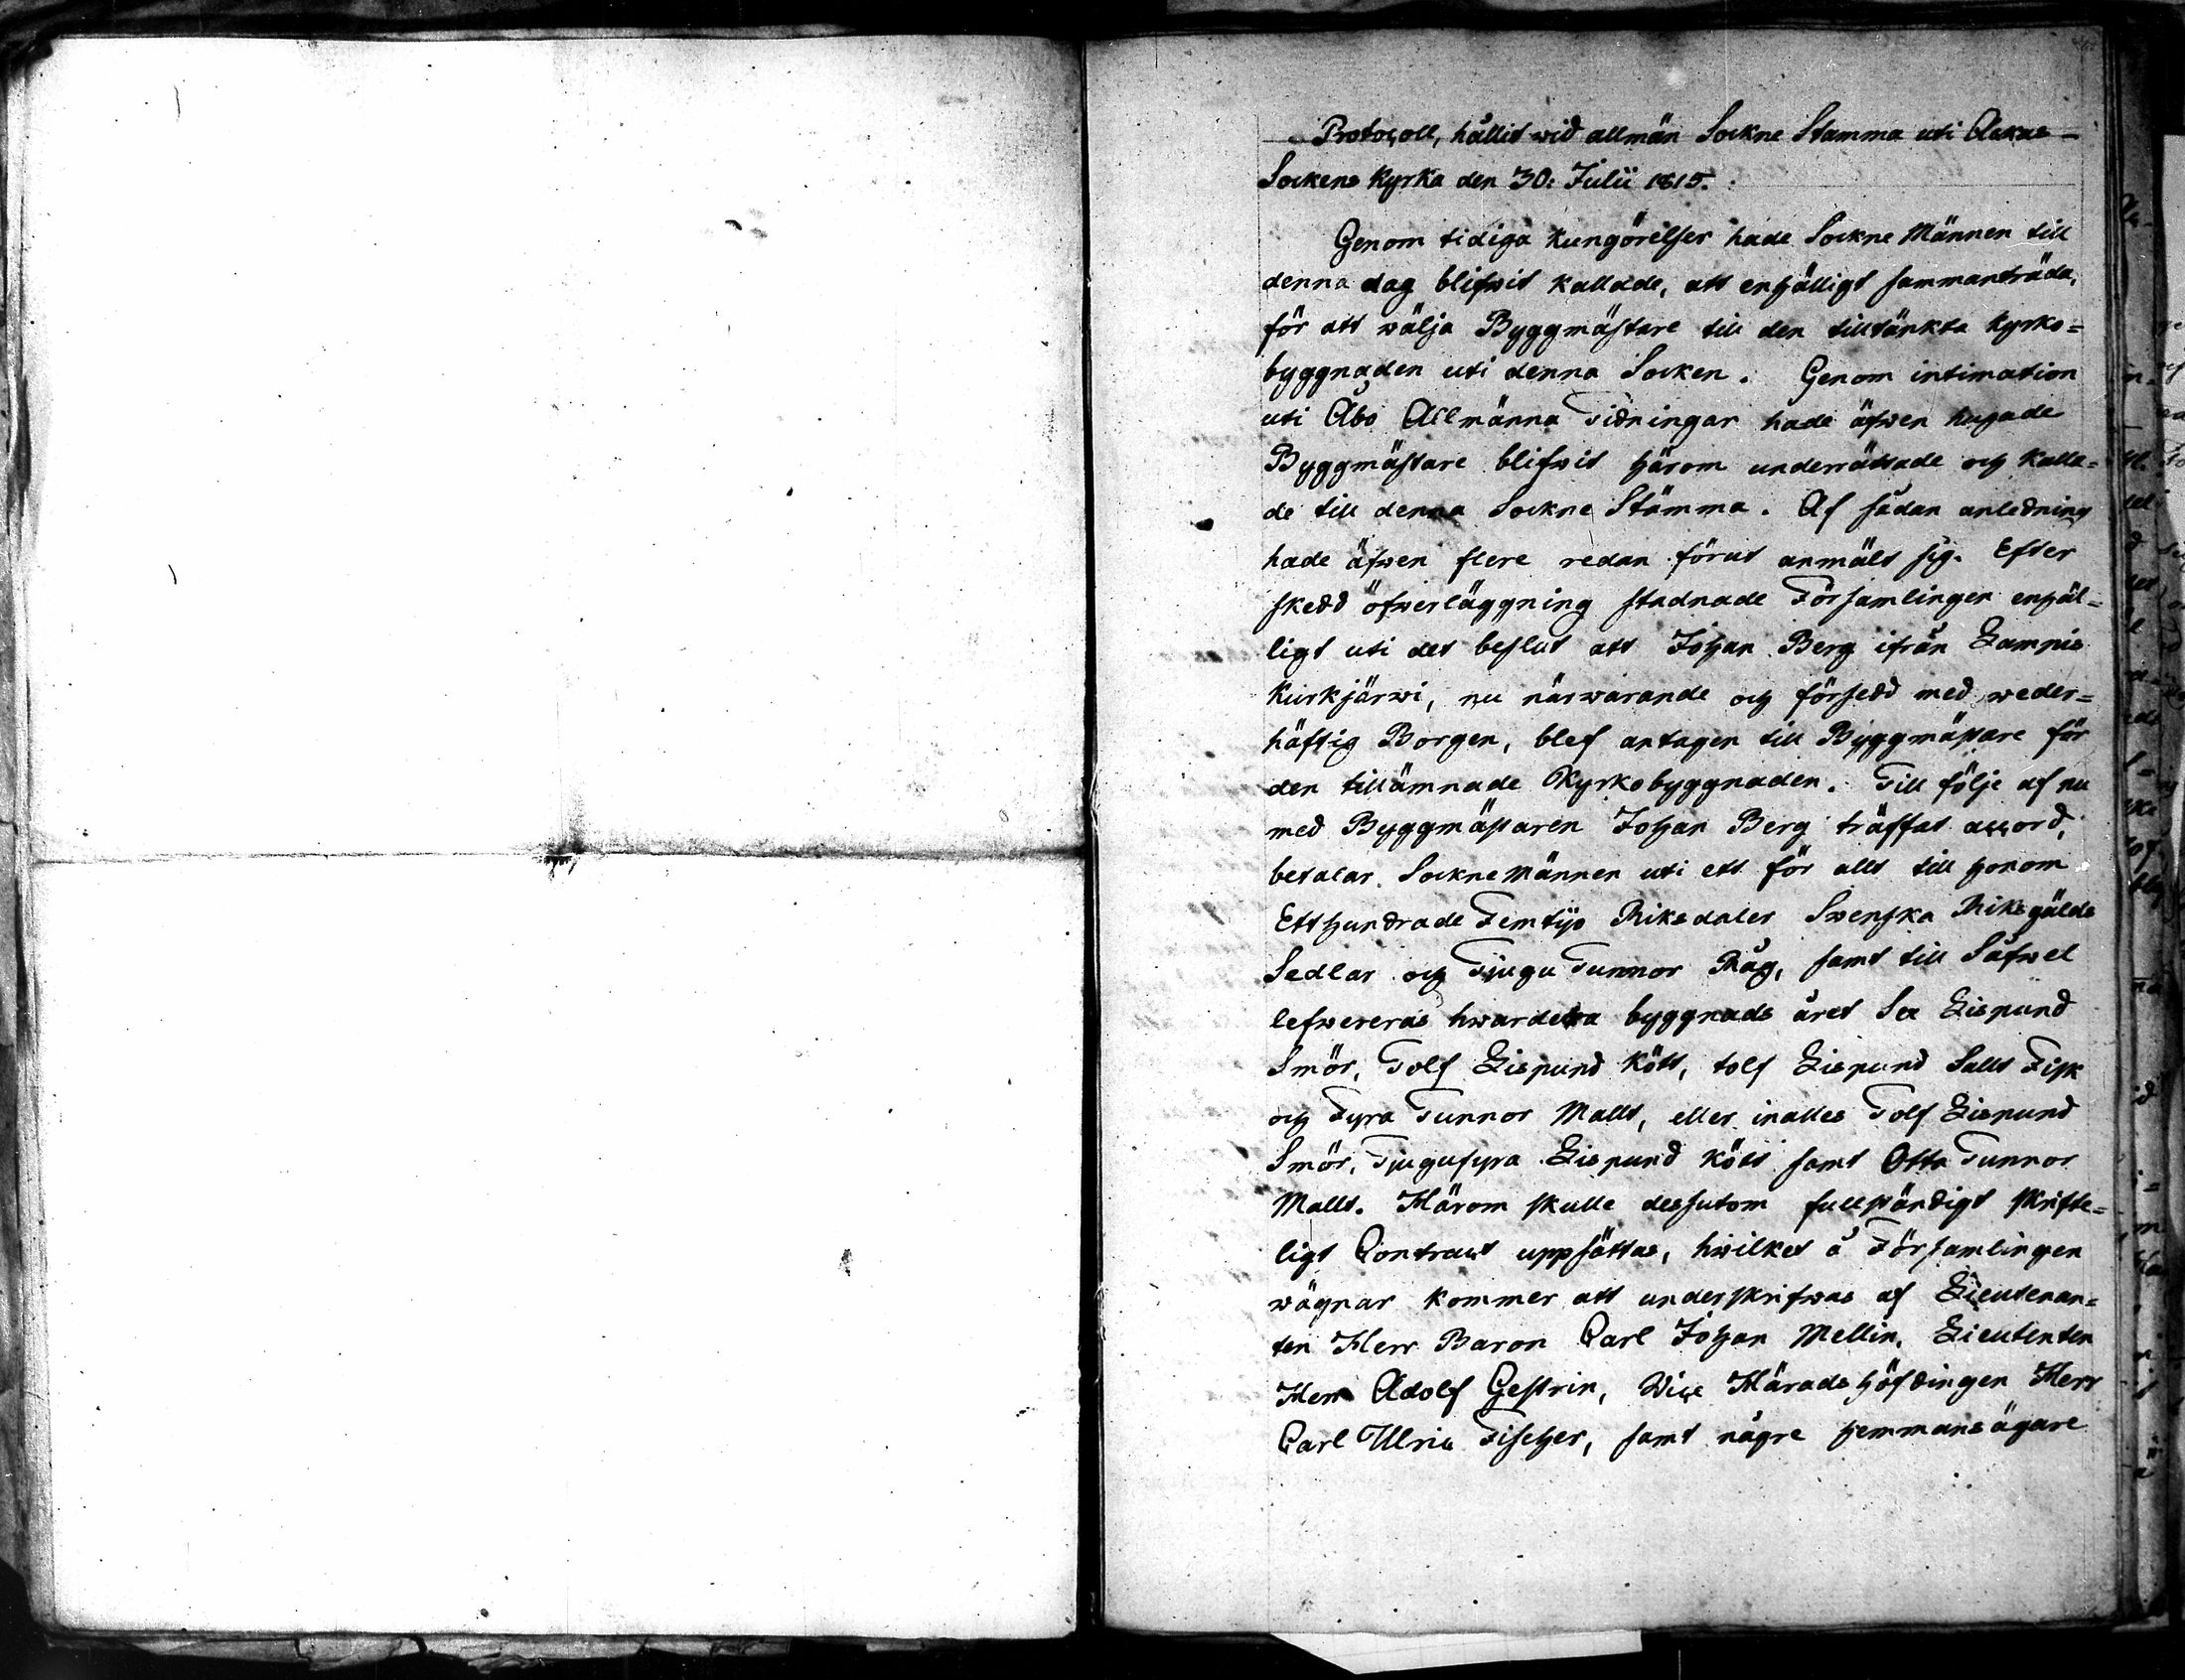 Protocoll, hållit wid allmän Sockne Stamma uti Askas-
Sockens Kyrka den 30. Julii 1815.
Genom tidiga Kungörelser hade Sockne Männen till
denna dag blifwit kallade, att enhälligt sammanträda,
för att wälja Byggmästare till den tilltänkta Kyrko=
byggnaden uti denna Socken. Genom intimation
uti Åbo Allmänna Tidningar hade äfwen hugade
Byggmästare blifwit härom underrättade och kalla=
de till denna Sockne Stämma. Af sådan anledning
hade äfwen flere redan förut anmält sig. Efter
skedd öfwerläggning stadnade Församlingen enhäl=
ligt uti det beslut att Johan Berg ifrån Lampis
Kurkjärwi, nu närwarande och försedd med weder=
häftig Borgen, blef antagen till Byggmästare för
den tillämnade Kyrkobyggnaden. Till följe af nu
med Byggmästaren Johan Berg träffat accord,
betalar Sockne Männen uti ett för allt till honom
Etthundrade Femtijo Riksdaler Swenska Riksgälds
Sedlar och Tjugu Tunnor Råg, samt till Såfwel
lefwereras hwardera byggnads året Sex Lispund
Smör, Tolf Lispund Kött, tolf Lispund Salt Fisk
och Fyra Tunnor Malt, eller inalles Tolf Lispund
Smör, Tjugufyra Lispund Kött samt Otta Tunnor
Malt. Härom skulle dessutom fullständigt skrifte=
ligt Contract uppsättas, hwilket å Församlingen
wägnar kommer att underskrifwas af Lieutenan=
ten Herr Baron Carl Johan Mellin, Lieutenten
Herr Adolf Gestrin, Wice Häradshöfdingen Herr
Carl Ulric Fischer, samt någre hemmansägare